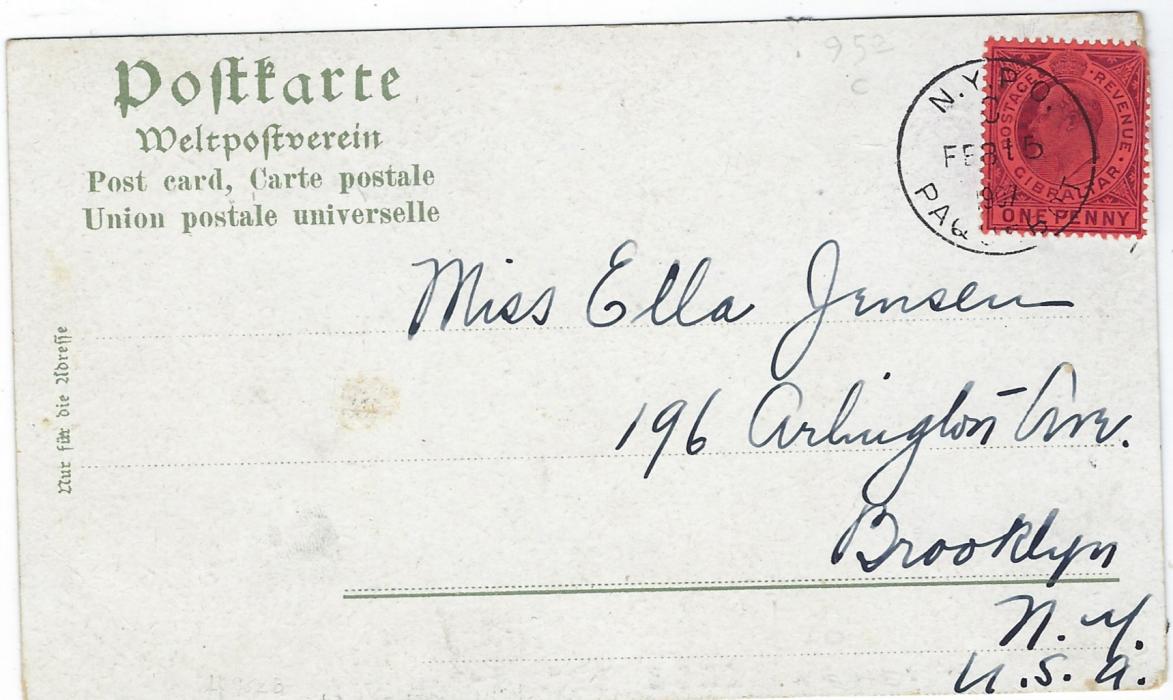 Postkarte
Weltpostverein
Post card, Carte postale
Union postale universelle
Nur für die Adresse
952
C
N.Y.P.O.
C
FEB 15
POSTAGE · REVENUE
GIBRALTAR
ONE PENNY
Miss Ella Jensen
196 Arlington Ave.
Brooklyn
N.Y.
U.S.A.